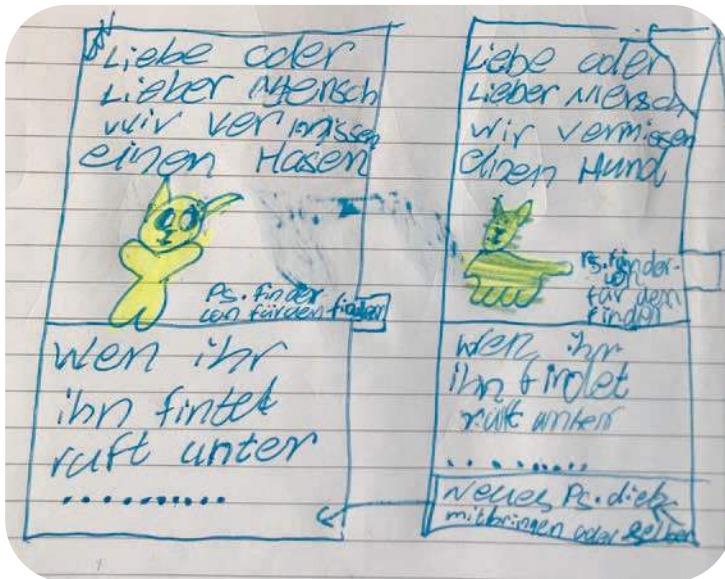 Liebe oder
Lieber Mensch
wir vermissen
einen Hasen
Ps. finder-
lon für den finder
wen ihr
ihn fintet
ruft unter
..........
Liebe oder
Lieber Mensch
wir vermissen
einen Hund
Ps. finder-
lon
für den
finden
wen ihr
ihn findet
ruft unter
.. . .....
Neues Ps. dieb
mitbringen oder selber